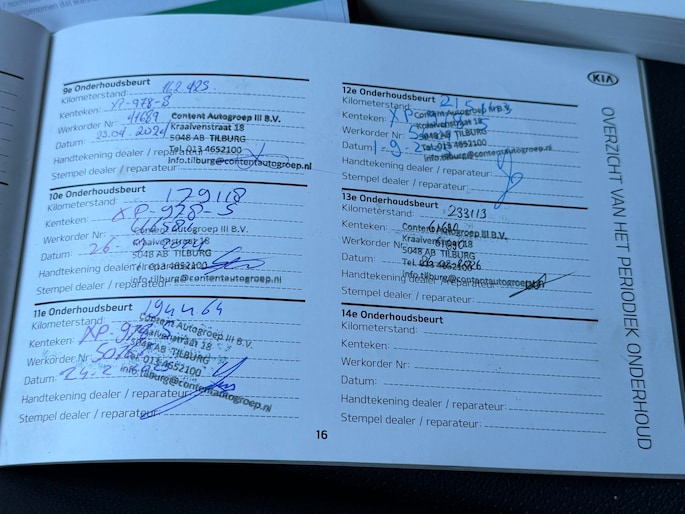 KIA
OVERZICHT VAN HET PERIODIEK ONDERHOUD
9e Onderhoudsbeurt
Kilometerstand: 162.425
Kenteken: XP-978-S
Werkorder Nr: 41689
Datum: 23.04.2024
Handtekening dealer / reparateur:
Stempel dealer / reparateur:
Content Autogroep III B.V.
Kraaivenstraat 18
5048 AB TILBURG
Tel. 013 4652100
info.tilburg@contentautogroep.nl
10e Onderhoudsbeurt
Kilometerstand: 179118
Kenteken: XP-978-S
Werkorder Nr:
Datum: 26-
Handtekening dealer / reparateur:
Stempel dealer / reparateur:
Content Autogroep III B.V.
Kraaivenstraat 18
5048 AB TILBURG
Tel. 013 4652100
info.tilburg@contentautogroep.nl
11e Onderhoudsbeurt
Kilometerstand: 194464
Kenteken: XP-978-S
Werkorder Nr:
Datum: 24-2
Handtekening dealer / reparateur:
Stempel dealer / reparateur:
Content Autogroep III B.V.
Kraaivenstraat 18
5048 AB TILBURG
Tel. 013 4652100
info.tilburg@contentautogroep.nl
12e Onderhoudsbeurt
Kilometerstand:
Kenteken: XP
Werkorder Nr:
Datum: 1-9-2
Handtekening dealer / reparateur:
Stempel dealer / reparateur:
Content Autogroep III B.V.
Kraaivenstraat 18
5048 AB TILBURG
Tel. 013 4652100
info.tilburg@contentautogroep.nl
13e Onderhoudsbeurt
Kilometerstand: 233113
Kenteken:
Werkorder Nr:
Datum:
Handtekening dealer / reparateur:
Stempel dealer / reparateur:
Content Autogroep III B.V.
Kraaivenstraat 18
5048 AB TILBURG
Tel. 013 4652100
info.tilburg@contentautogroep.nl
14e Onderhoudsbeurt
Kilometerstand:
Kenteken:
Werkorder Nr:
Datum:
Handtekening dealer / reparateur:
Stempel dealer / reparateur:
16